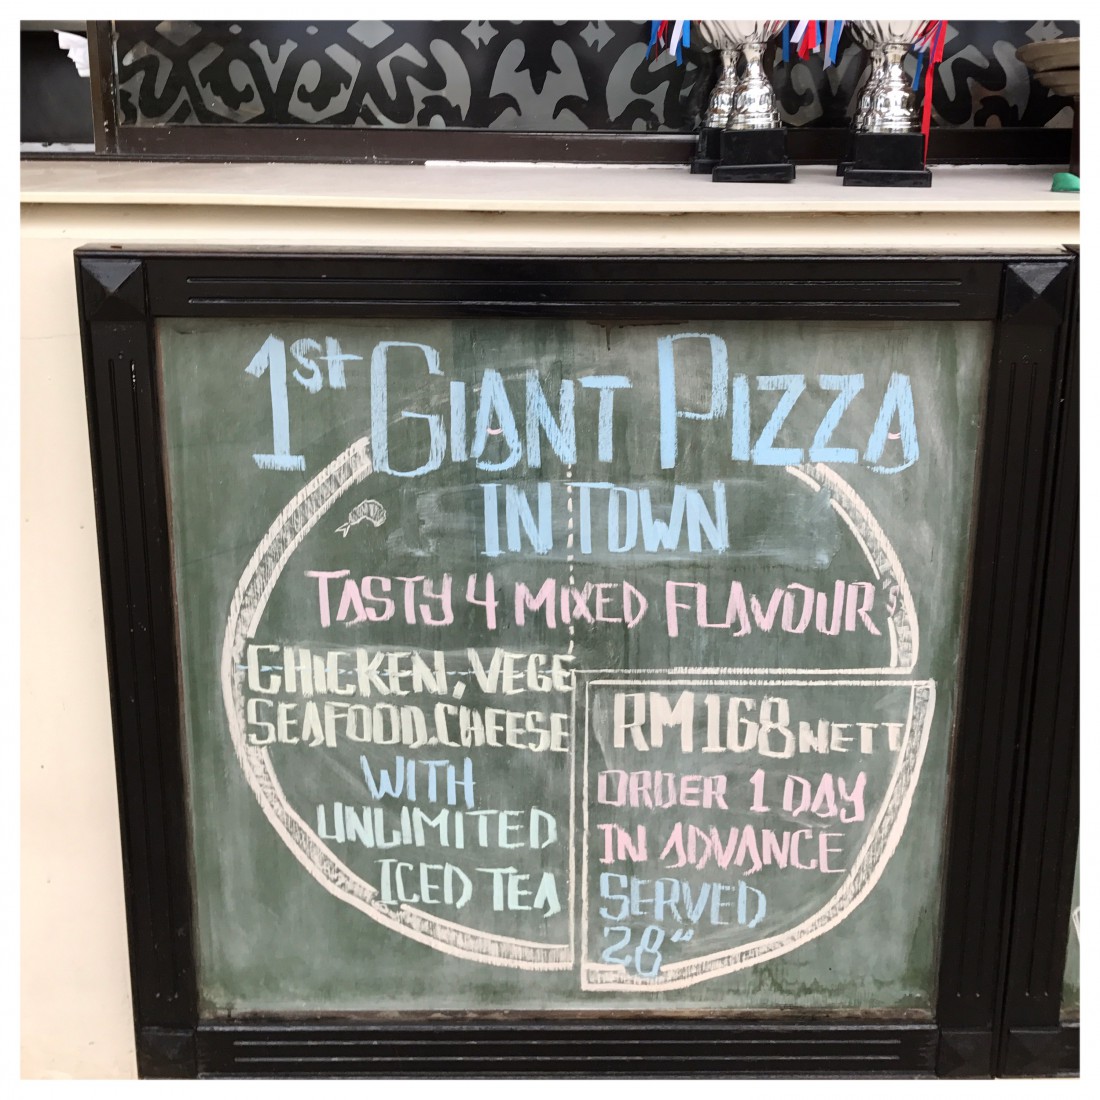 1st GIANT PIZZA
IN TOWN
TASTY 4 MIXED FLAVOURS
CHICKEN, VEGE
SEAFOOD, CHEESE
WITH
UNLIMITED
ICED TEA
RM168 NETT
ORDER 1 DAY
IN ADVANCE
SERVED
28"